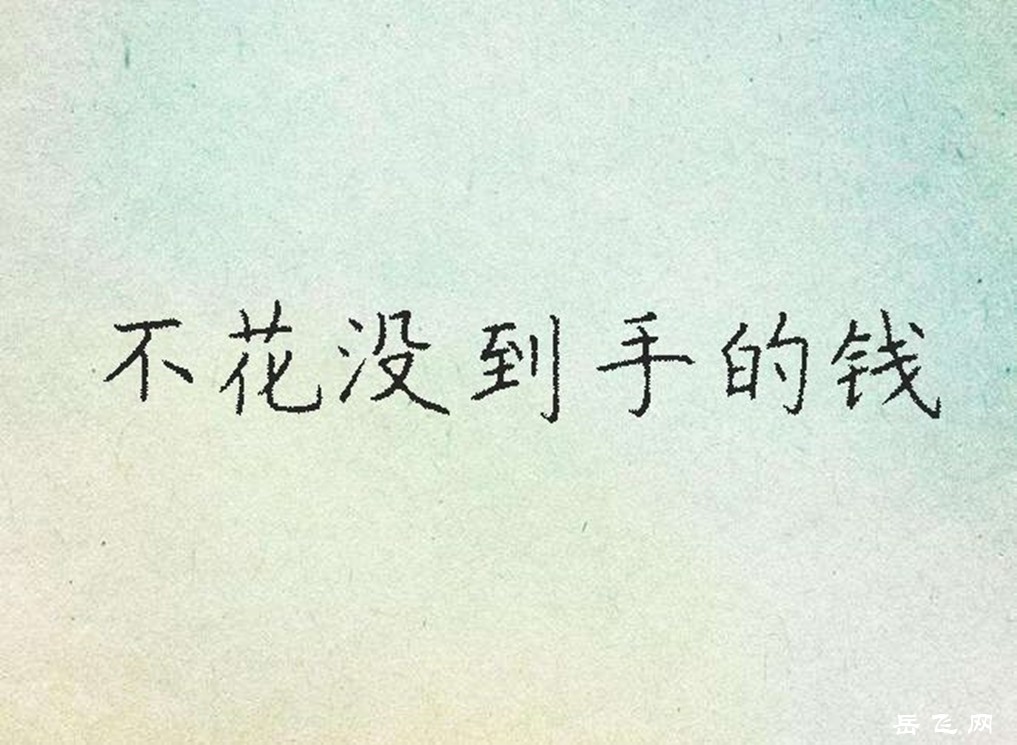 不花没到手的钱
岳飞网